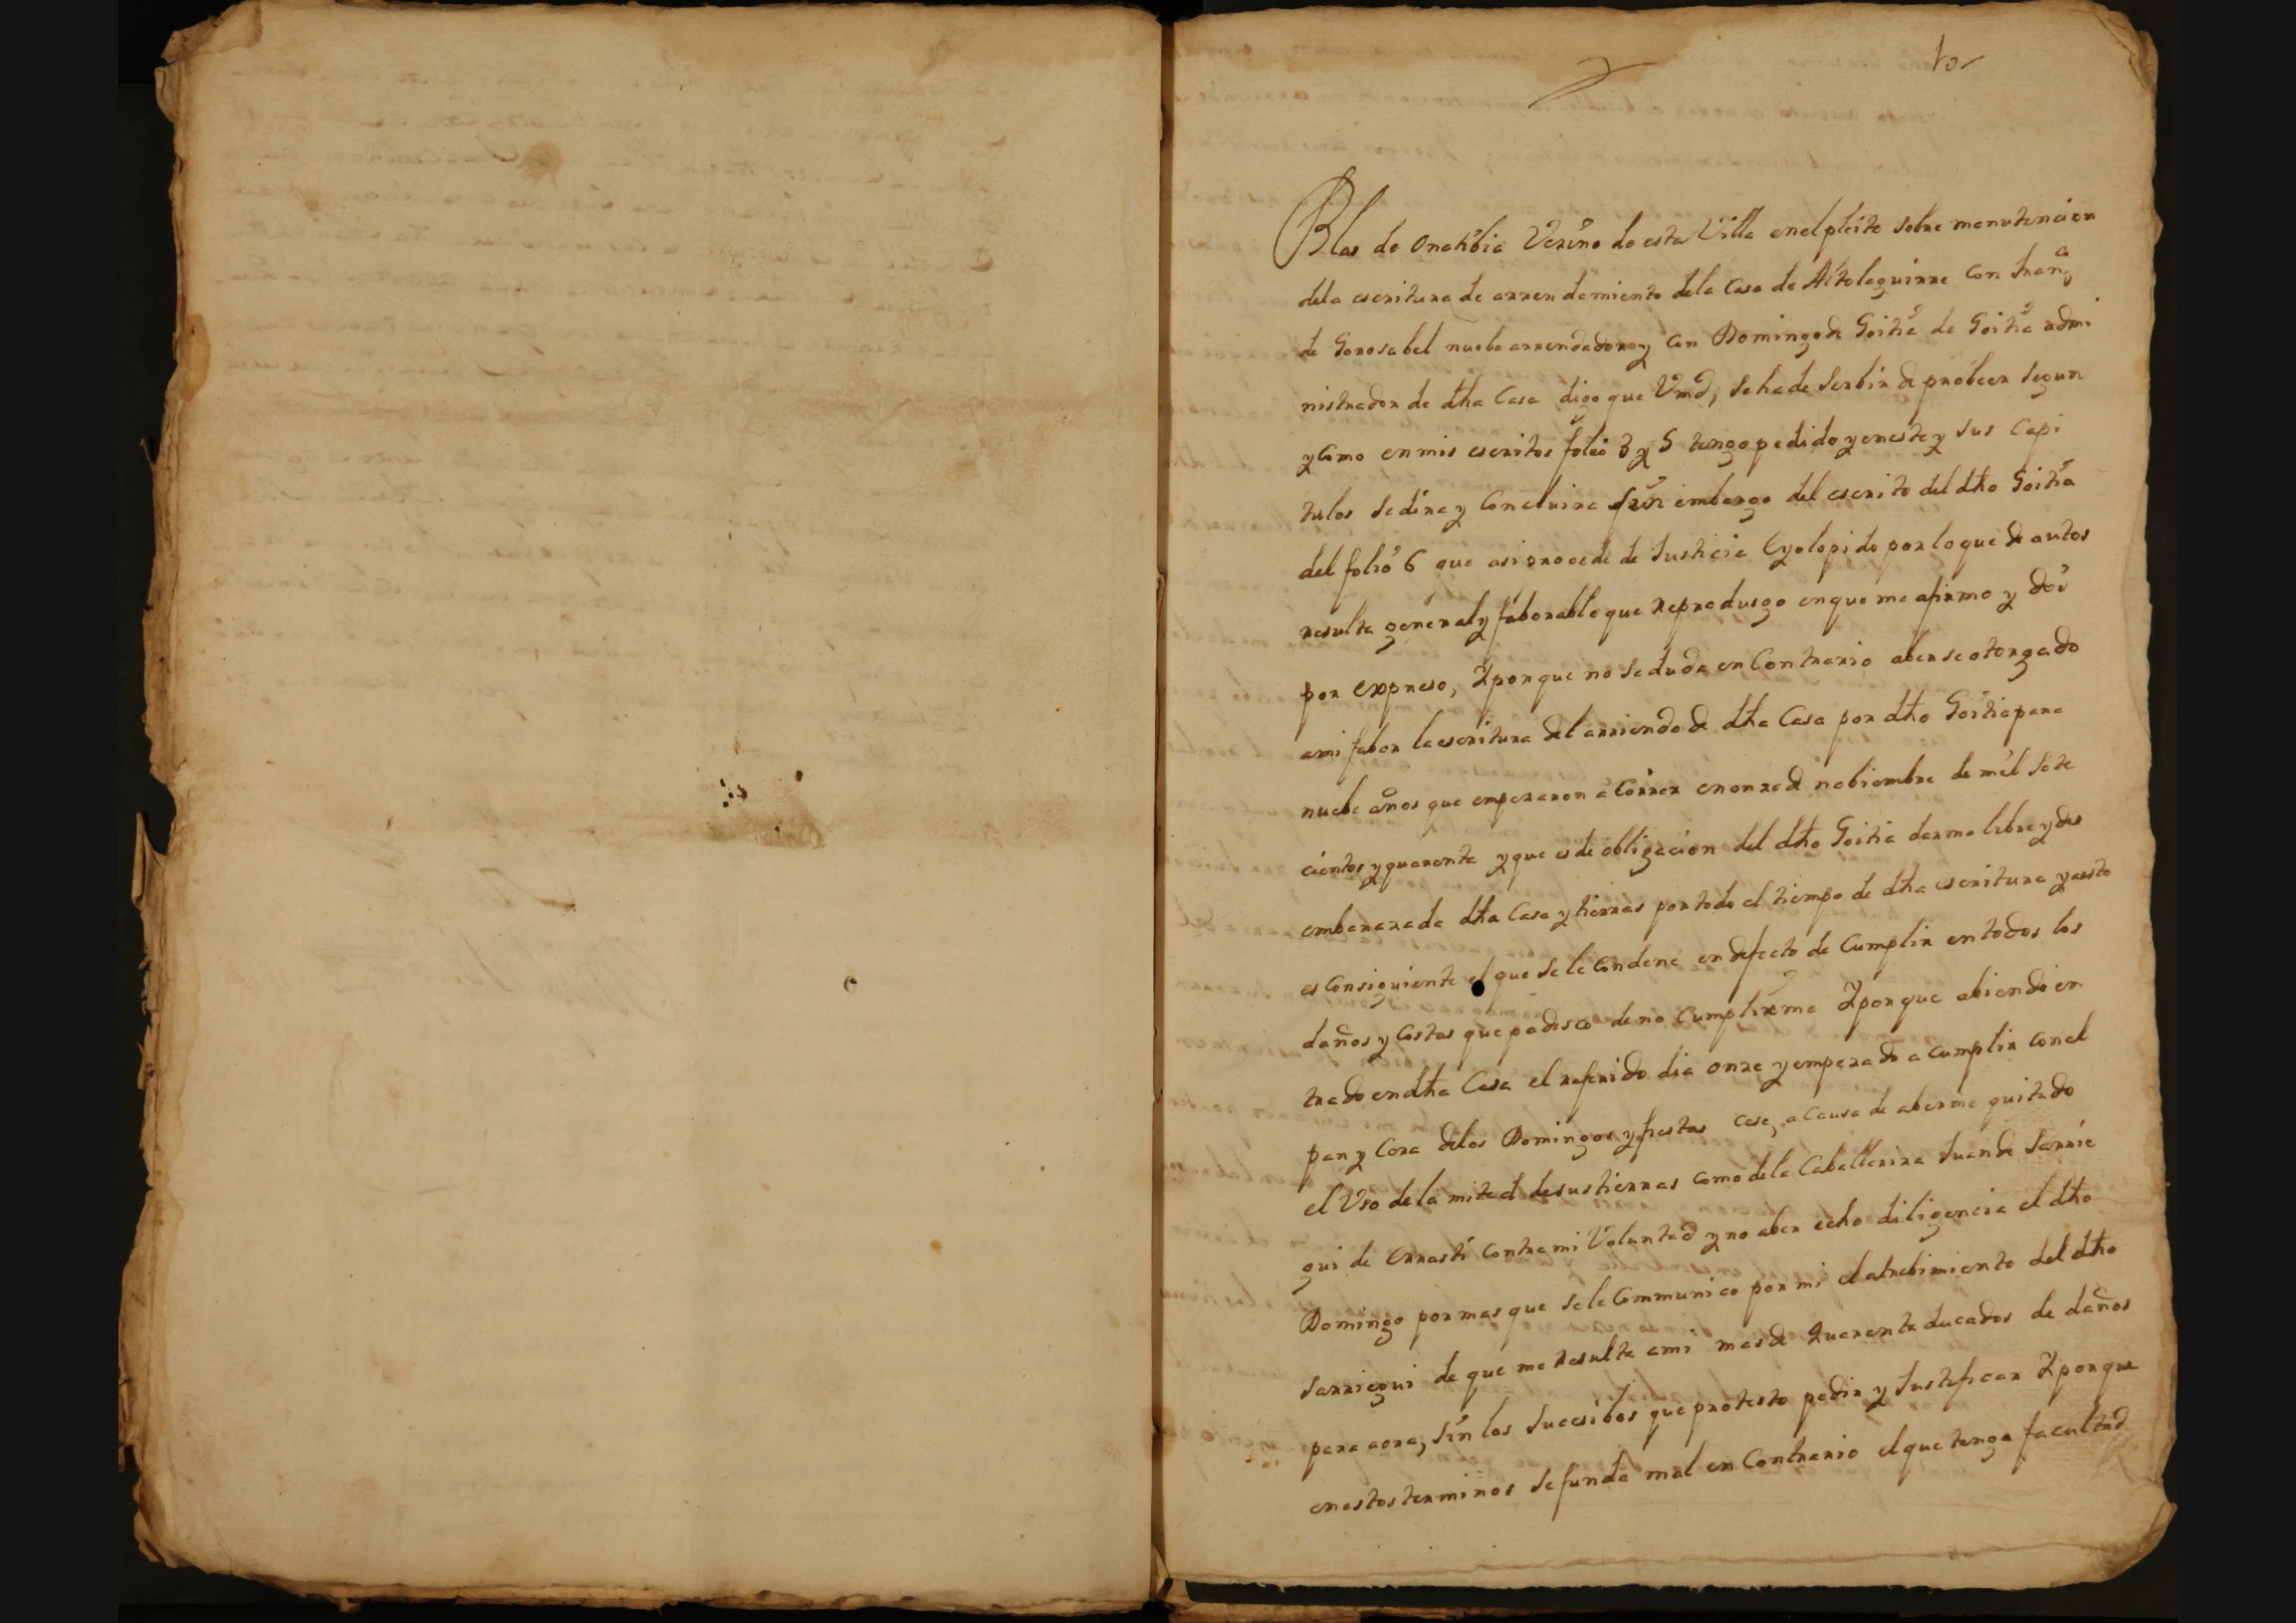 10
Blas de Onatibia Vezino de esta Villa enel pleito sobre manutencion
dela escritura de arrendamiento dela Casa de Altoleguirre Con Fran.co
de Gorosabel nuebo arrendador y con Domingo de Goitia de Goitia admi
nistrador de dha Casa digo que Vmd, se ha de serbir de probeer segun
y como en mis escritos folio 3 y 5 tengo pedido y en este y sus Capi
tulos se dira y Concluira sin embargo del escrito del dho Goitia
del folio 6 que asi procede de Justicia Eyolopido por lo que de autos
resulta general y faborable que Reprodusgo en que me afirmo y doi
por expreso, Y porque no se duda en Contrario aberse otorgado
ami fabor la escritura del arriendo de dha Casa por dho Goitia para
nuebe años que empezaron a Correr en onze de nobiembre de mil sete
cientos y quarenta y que es de obligacion del dho Goitia darme libre y des
embarazada dha Casa y tierras por todo el tiempo de dha escritura y aesto
es Consiguiente el que se le Condene en defecto de Cumplir en todos los
daños y Costas que padisco de no Cumplirme Y porque abiendo en
trado en dha Casa el referido dia onze y empezado a cumplir con el
pan y Cera delos Domingos y fiestas cese, a Causa de aberme quitado
el Uso de la mitad de sus tierras como dela Caballeriza Juan de Sarrie
gui de Errasti Contra mi Voluntad y no aber echo diligencia el dho
Domingo por mas que sele Communico por mi el atrebimiento del dho
Sarriegui de que me Resulta ami mas de quarenta ducados de daños
para aora, sin los Sucesibos que protesto pedir y Justificar Y porque
en estos terminos se funda mal en Contrario el que tenga facultad